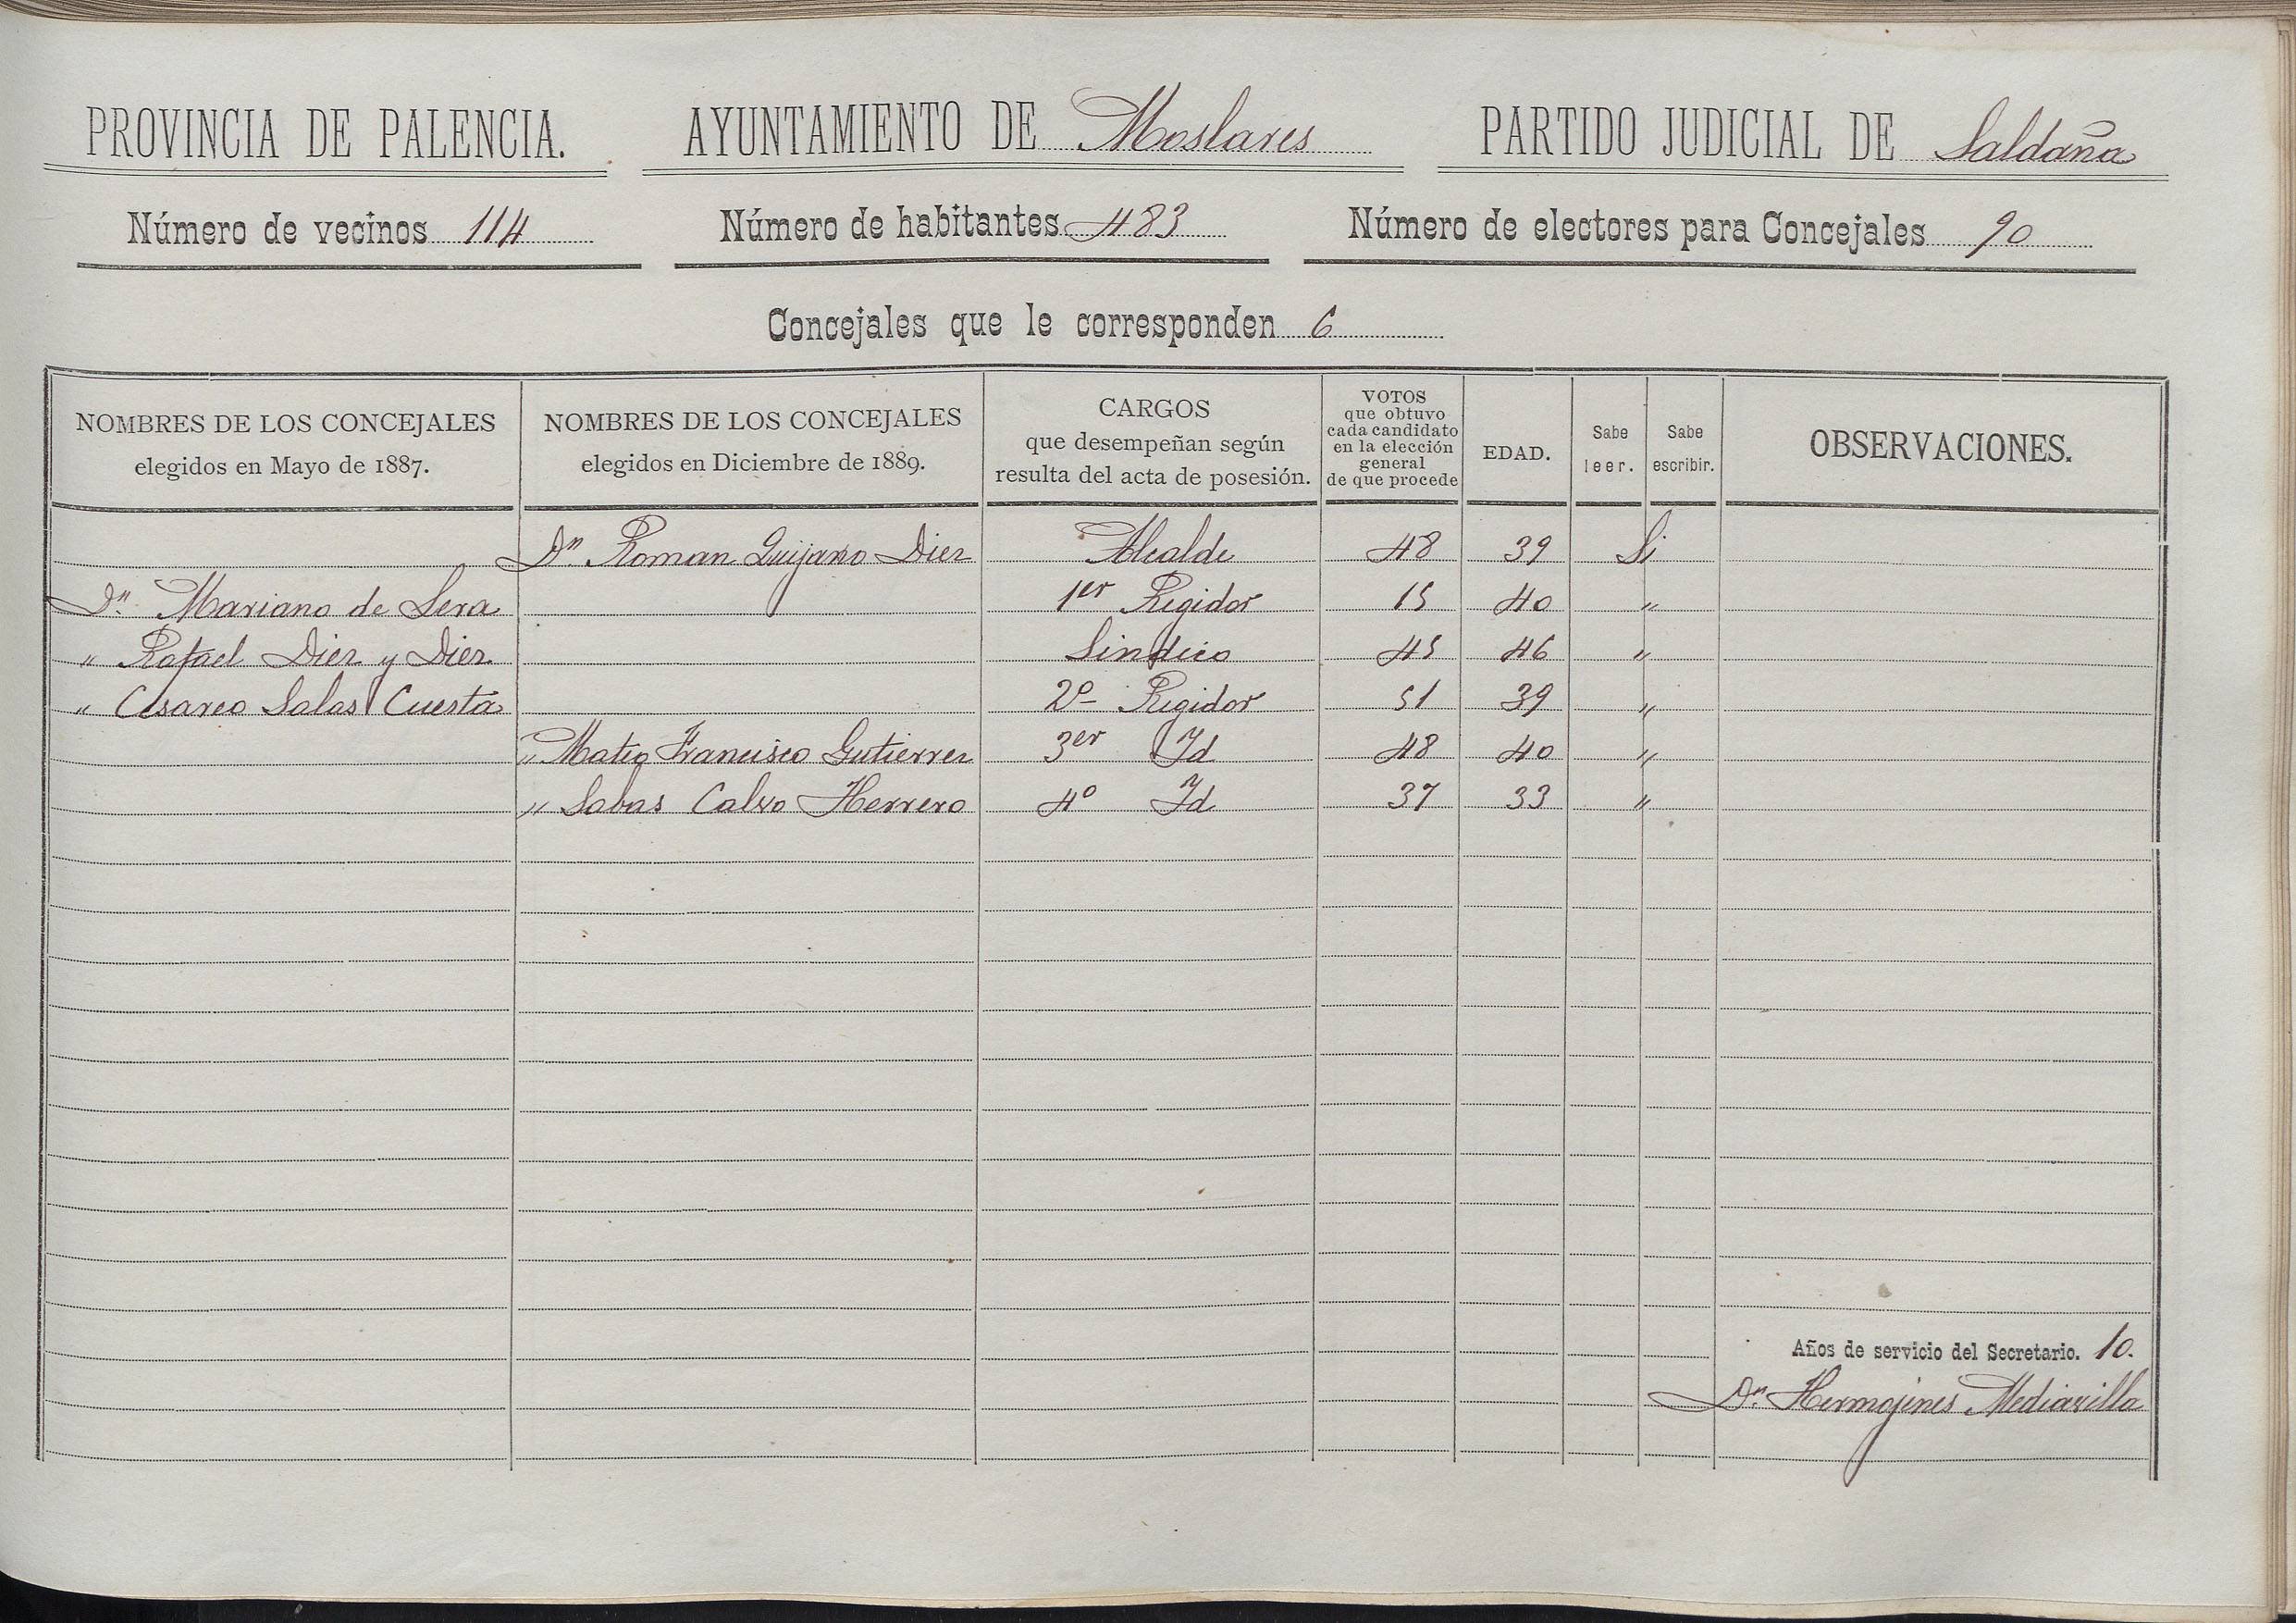 PROVINCIA DE PALENCIA. AYUNTAMIENTO DE Moslares PARTIDO JUDICIAL DE Saldaña
Número de vecinos 114 Número de habitantes 483 Número de electores para Concejales 90
Concejales que le corresponden 6
NOMBRES DE LOS CONCEJALES
elegidos en Mayo de 1887.
NOMBRES DE LOS CONCEJALES
elegidos en Diciembre de 1889.
CARGOS
que desempeñan según
resulta del acta de posesión.
VOTOS
que obtuvo
cada candidato
en la elección
general
de que procede
EDAD.
Sabe
leer.
Sabe
escribir.
OBSERVACIONES.
Dn. Roman Quijano Diez Alcalde 48 39 Si
Dn. Mariano de Lera 1er Regidor 15 40 "
" Rafael Diez y Diez Sindico 45 46 "
" Cesareo Salas Cuesta 2º Regidor 51 39 "
" Mateo Francisco Gutierrez 3er Id 48 40 "
" Sabas Calvo Herrero 4º Id 37 33 "
Años de servicio del Secretario. 10.
Dn. Hermojines Mediavilla